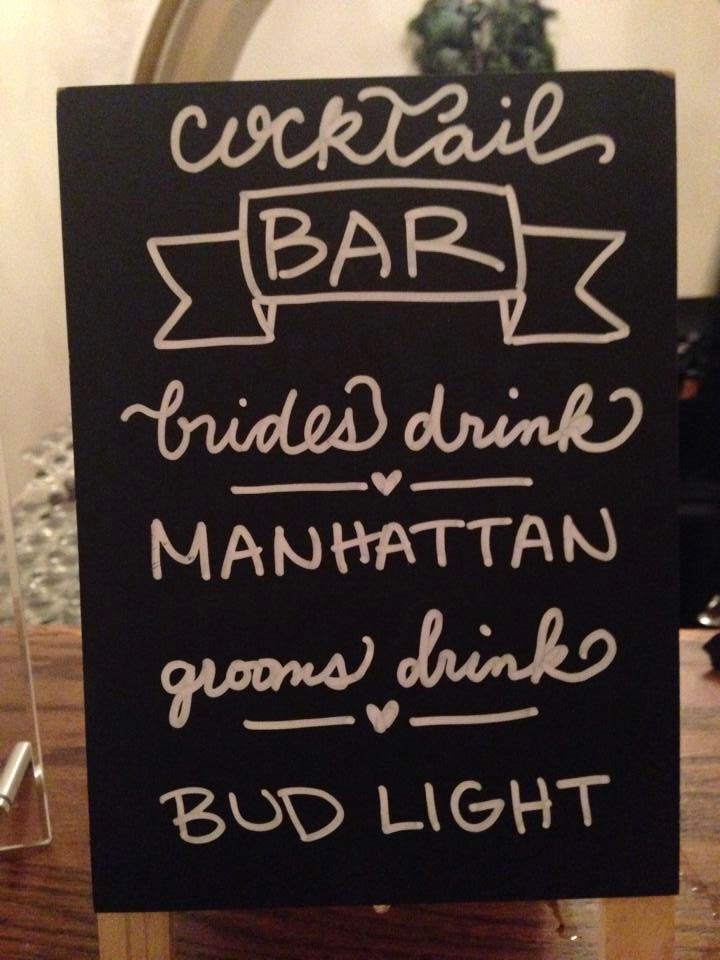 cocktail
BAR
brides drink
MANHATTAN
grooms drink
BUD LIGHT